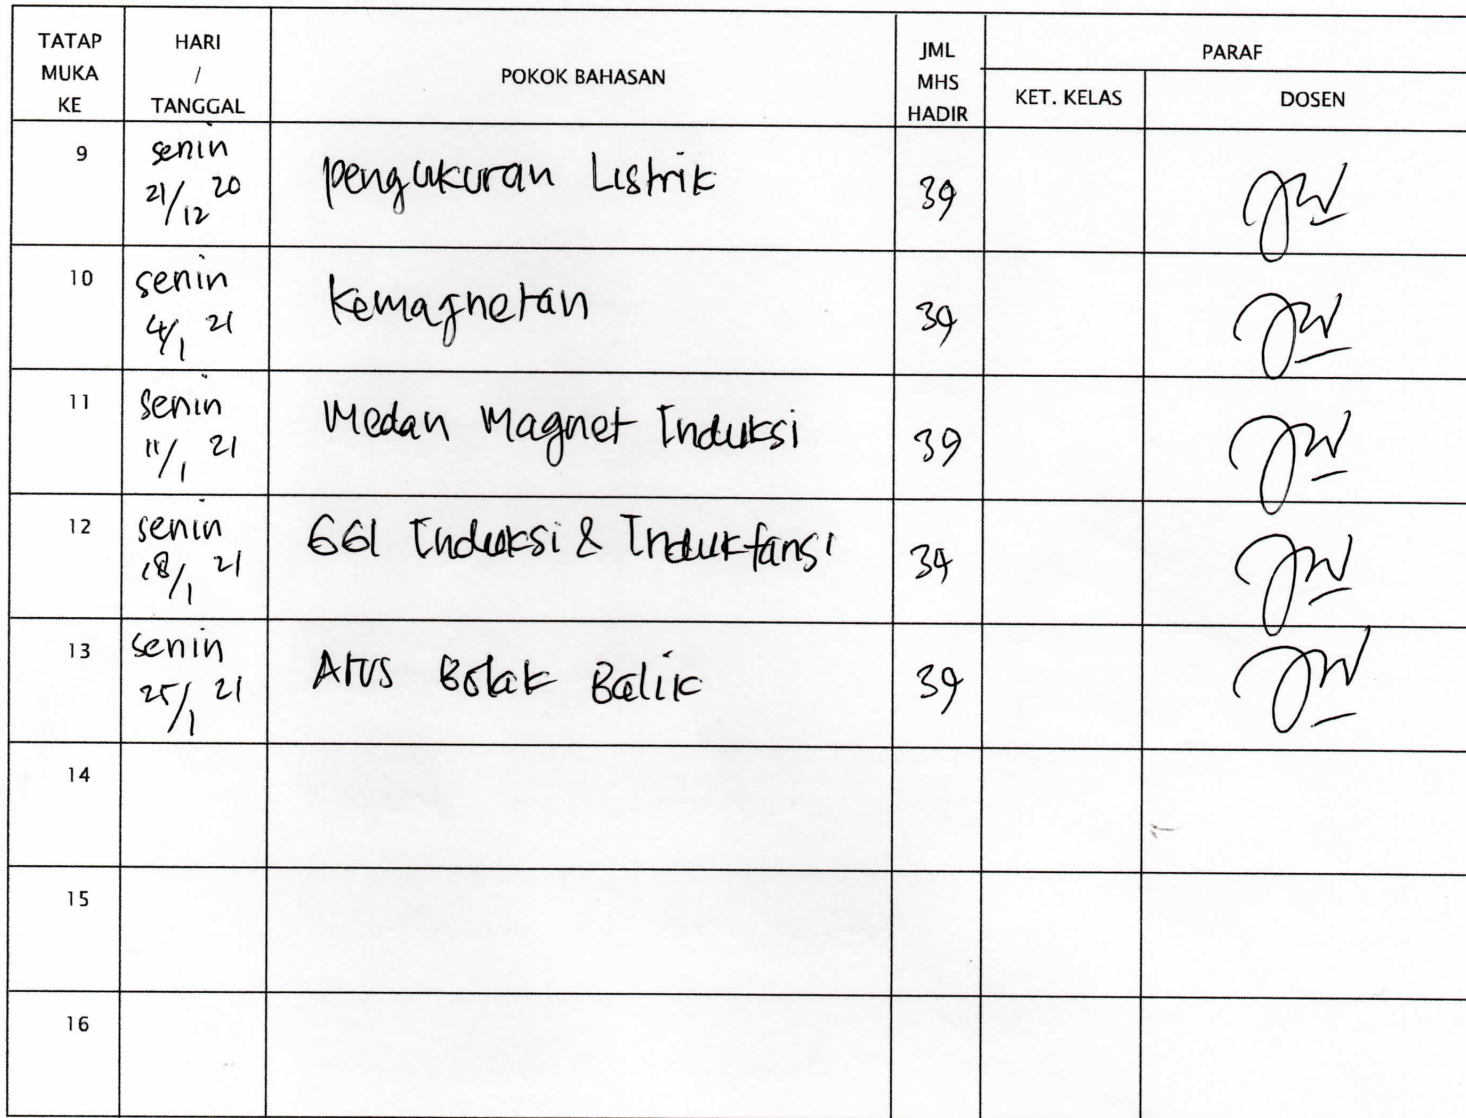 TATAP MUKA KE
HARI / TANGGAL
POKOK BAHASAN
JML MHS HADIR
PARAF
KET. KELAS
DOSEN
9 senin 21/12 20 pengukuran Listrik 39
10 senin 4/1 21 Kemagnetan 39
11 senin 11/1 21 Medan Magnet Induksi 39
12 senin 18/1 21 GGl Induksi & Induktansi 39
13 senin 25/1 21 Arus Bolak Balik 39
14
15
16